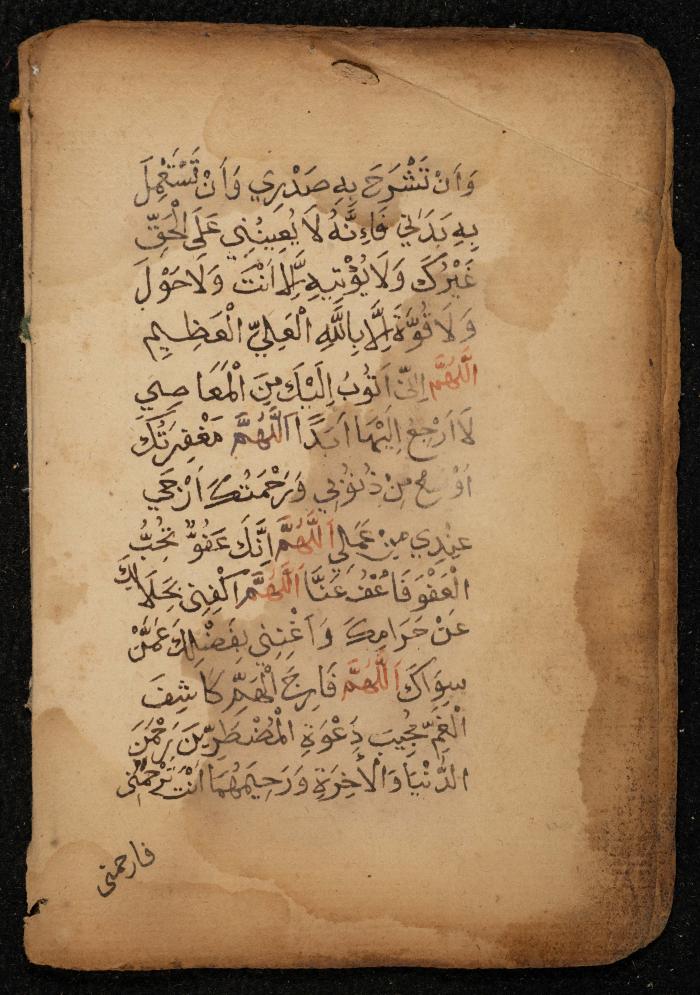 وَاَنْ تَشْرَحَ بِهِ صَدْرِي وَاَنْ تَسْتَعْمِلَ
بِهِ بَدَنِي فَاِنَّهُ لَا يُعِينُنِي عَلَى الْحَقِّ
غَيْرُكَ وَلَا يُؤْتِيهِ اِلَّا اَنْتَ وَلَا حَوْلَ
وَلَا قُوَّةَ اِلَّا بِاللَّهِ الْعَلِيِّ الْعَظِيمِ
اَللَّهُمَّ اِنِّي اَتُوبُ اِلَيْكَ مِنَ الْمَعَاصِي
لَا اَرْجِعُ اِلَيْهَا اَبَدًا اَللَّهُمَّ مَغْفِرَتُكَ
اَوْسَعُ مِنْ ذُنُوْبِي وَرَحْمَتُكَ اَرْجَي
عِنْدِي مِنْ عَمَلِي اَللَّهُمَّ اِنَّكَ عَفُوٌّ تُحِبُّ
الْعَفْوَ فَاعْفُ عَنَّا اَللَّهُمَّ اكْفِنِي بِحَلَالِكَ
عَنْ حَرَامِكَ وَاَغْنِنِي بِفَضْلِكَ عَمَّنْ
سِوَاكَ اَللَّهُمَّ فَارِجَ الْهَمِّ كَاشِفَ
الْغَمِّ مُجِيبَ دَعْوَةِ الْمُضْطَرِّينَ رَحْمَنَ
الدُّنْيَا وَالْاَخِرَةِ وَرَحِيمَهُمَا اَنْتَ تَرْحَمُنِي
فارحمني